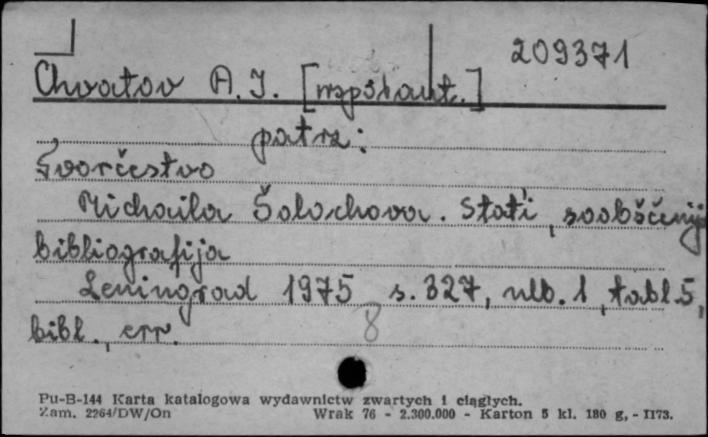 209371
Chvatov A. J. [współaut.]
patrz:
Tvorčestvo
Michaila Šolochova. Stat'i, soobščenija
bibliografija
Leningrad 1975 s. 327, nlb. 1, tabl. 5,
bibl., err.
8
Pu-B-144 Karta katalogowa wydawnictw zwartych i ciągłych.
Zam. 2264/DW/On Wrak 76 - 2.300.000 - Karton 5 kl. 180 g, - II73.